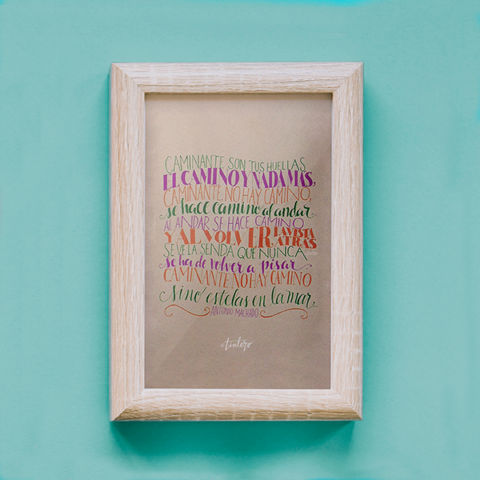 CAMINANTE SON TUS HUELLAS
EL CAMINO Y NADA MAS,
CAMINANTE NO HAY CAMINO,
se hace camino al andar
AL ANDAR SE HACE CAMINO
Y AL VOLVER LA VISTA ATRAS
SE VE LA SENDA QUE NUNCA
se ha de volver a pisar
CAMINANTE NO HAY CAMINO
sino estelas en la mar
ANTONIO MACHADO